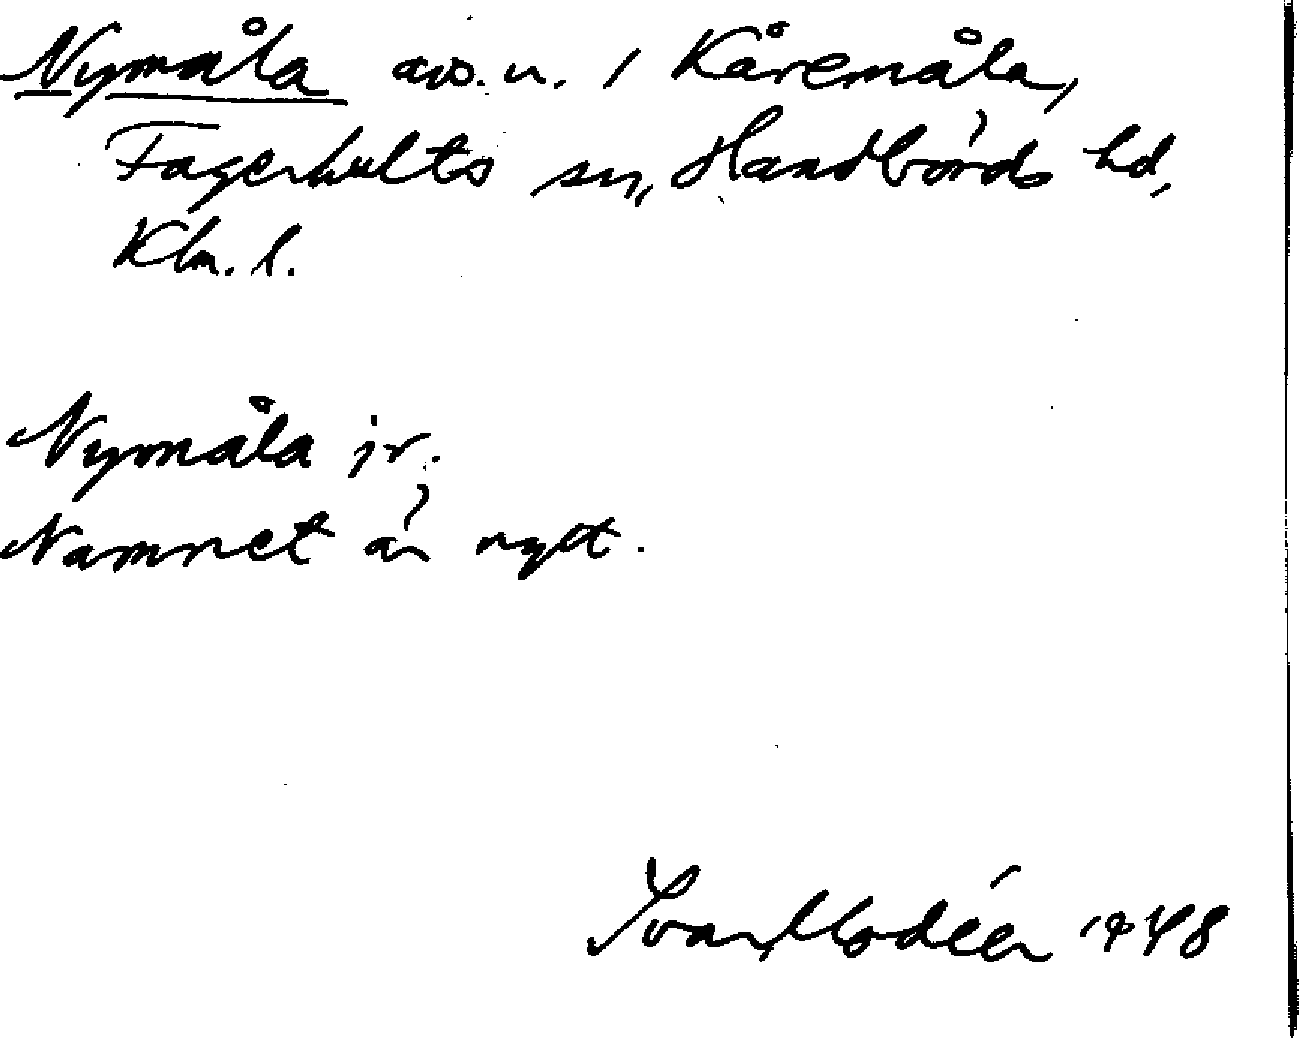 Nymåla avs. u. / Kåremåla,
Fagerhults sn, Handbörds hd,
Klm. l.
Nymåla jr.
Namnet är nytt.
Ivar Modéer 1948